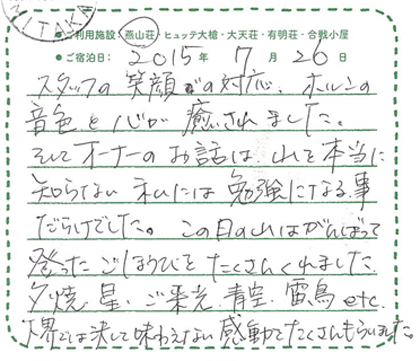 MITAKA
●ご利用施設:燕山荘・ヒュッテ大槍・大天荘・有明荘・合戦小屋
●ご宿泊日: 2015年 7月 26日
スタッフの笑顔での対応、ホルンの
音色と心が癒されました。
そしてオーナーのお話は、山を本当に
知らない私には勉強になる事
だらけでした。この日の山はがんばって
登ったごほうびをたくさんくれました
夕焼、星、ご来光、青空、雷鳥etc.
堺では決して味わえない感動をたくさんもらいました。